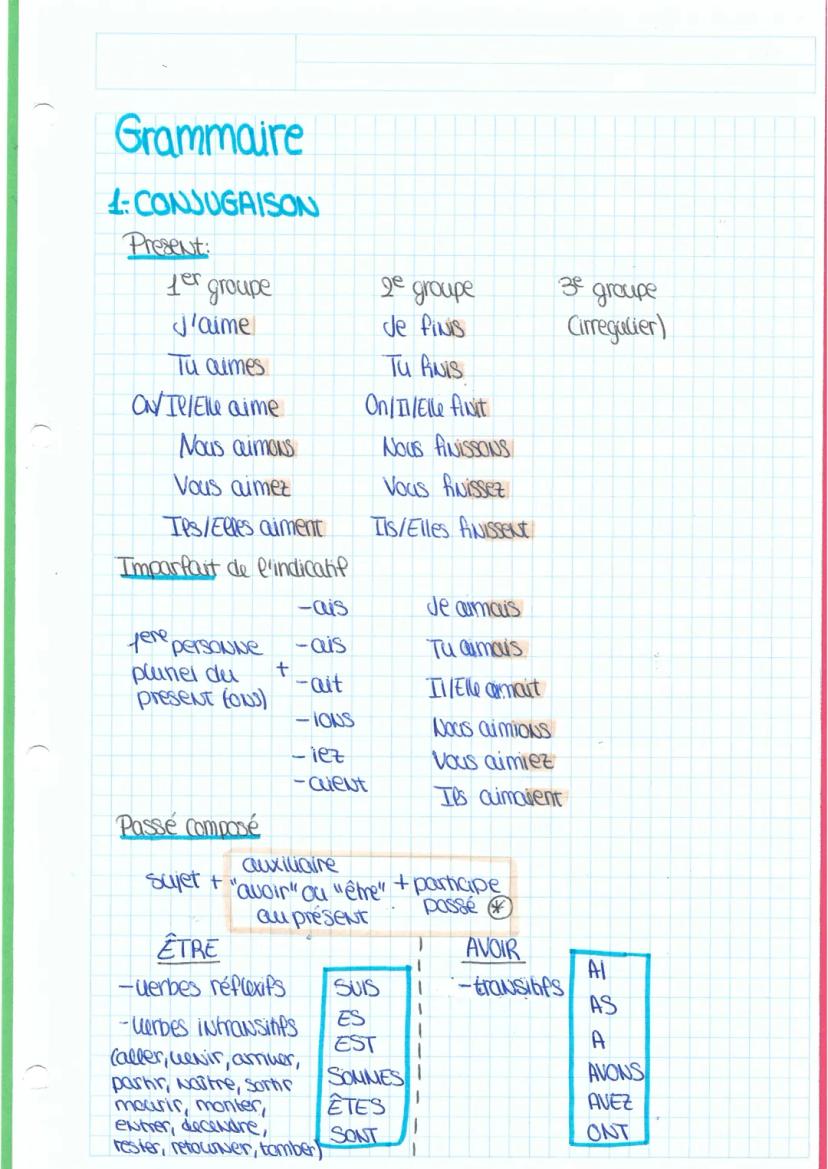 Grammaire
1: CONJUGAISON
Present:
1er groupe 2e groupe 3e groupe
J'aime Je finis (irregulier)
Tu aimes Tu finis
On/Il/Elle aime On/Il/Elle finit
Nous aimons Nous finissons
Vous aimez Vous finissez
Ils/Elles aiment Ils/Elles finissent
Imparfait de l'indicatif
-ais Je aimais
1ere personne -ais Tu aimais
pluriel du + -ait Il/Elle aimait
present (ons)
-ions Nous aimions
-iez Vous aimiez
-aient Ils aimaient
Passé composé
auxiliaire
sujet + "avoir" ou "être" + participe
au présent passé *
ÊTRE AVOIR
-verbes réflexifs SUIS -transitifs AI
-verbes intransitifs ES AS
(aller, venir, arriver, EST A
partir, naître, sortir SOMMES AVONS
mourir, monter, ÊTES AVEZ
entrer, decendre, SONT ONT
rester, retourner, tomber)